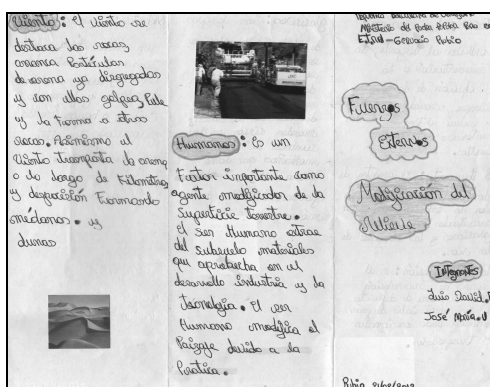 Viento: El Viento se
destara las rocas
arranca Partículas
de arena ya disgregadas
y con ellas golpea, Pule
y da Forma a otras
rocas. Asimismo el
Viento Transporta la arena
a lo largo de Kilometros
y deposición Formando
médanos. y
dunas
Humanos: Es un
Factor importante como
agente modificador de la
Superficie terrestre.
El ser Humano extrae
del subsuelo materiales
que aprobecha en el
desarrollo industria y la
Tecnologia. El ser
Humano modifica el
Paizaje devido a la
Practica.
Ministerio del Poder
Gervacio Rubio
Fuerzas
Externas
Modificacion del
Relieve
Integrantes
Luis David.
José María. V
Rubio